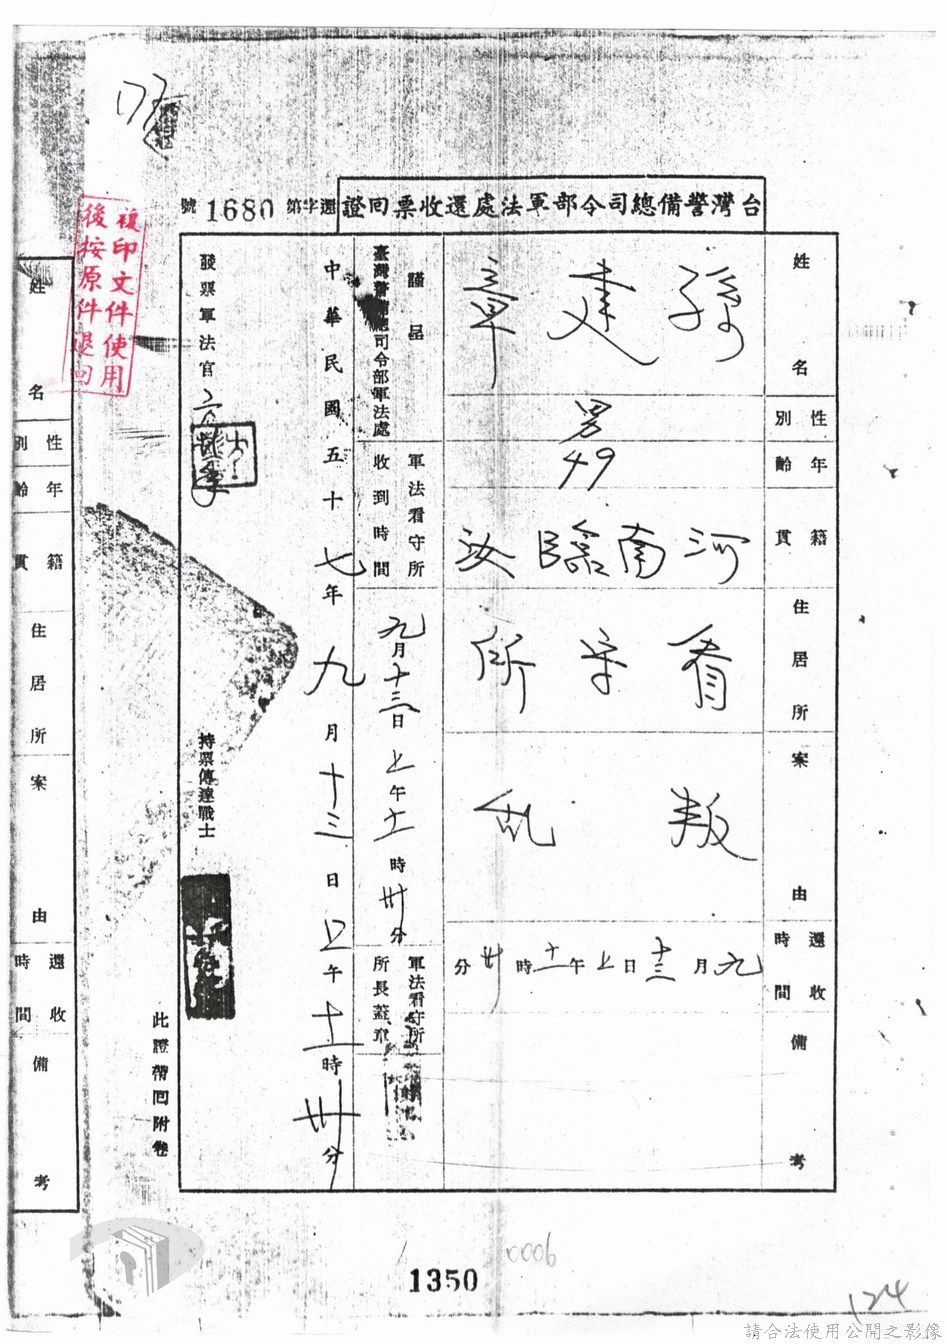 台灣警備總司令部軍法處還收票回證
還字第1680號
姓名
孫建章
性別
男
年齡
49
籍貫
河南臨汝
住居所
看守所
案由
叛乱
還收時間
九月十三日上午十一時卅分
備考
謹呈
臺灣警備總司令部軍法處
軍法看守所收到時間
九月十三日上午十一時卅分
軍法看守所所長蓋章
中華民國五十七年九月十三日上午十一時卅分
發票軍法官
持票傳達戰士
此證帶回附卷
複印文件使用
後按原件退回
姓名
性別
年齡
籍貫
住居所
案由
還收時間
備考
0006
1350
124
請合法使用公開之影像